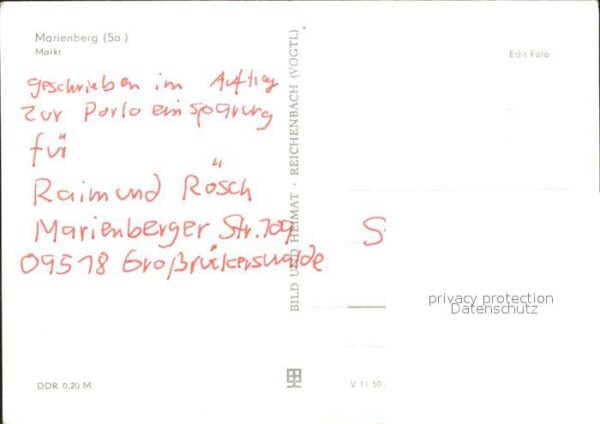 Marienberg (Sa.)
Markt
Echt Foto
geschrieben im Auftrag
zur Portoeinsparung
für
Raimund Rösch
Marienberger Str. 109
09518 Großrückerswalde
S
BILD UND HEIMAT · REICHENBACH (VOGTL)
privacy protection
Datenschutz
DDR 0,20 M
V 11 50